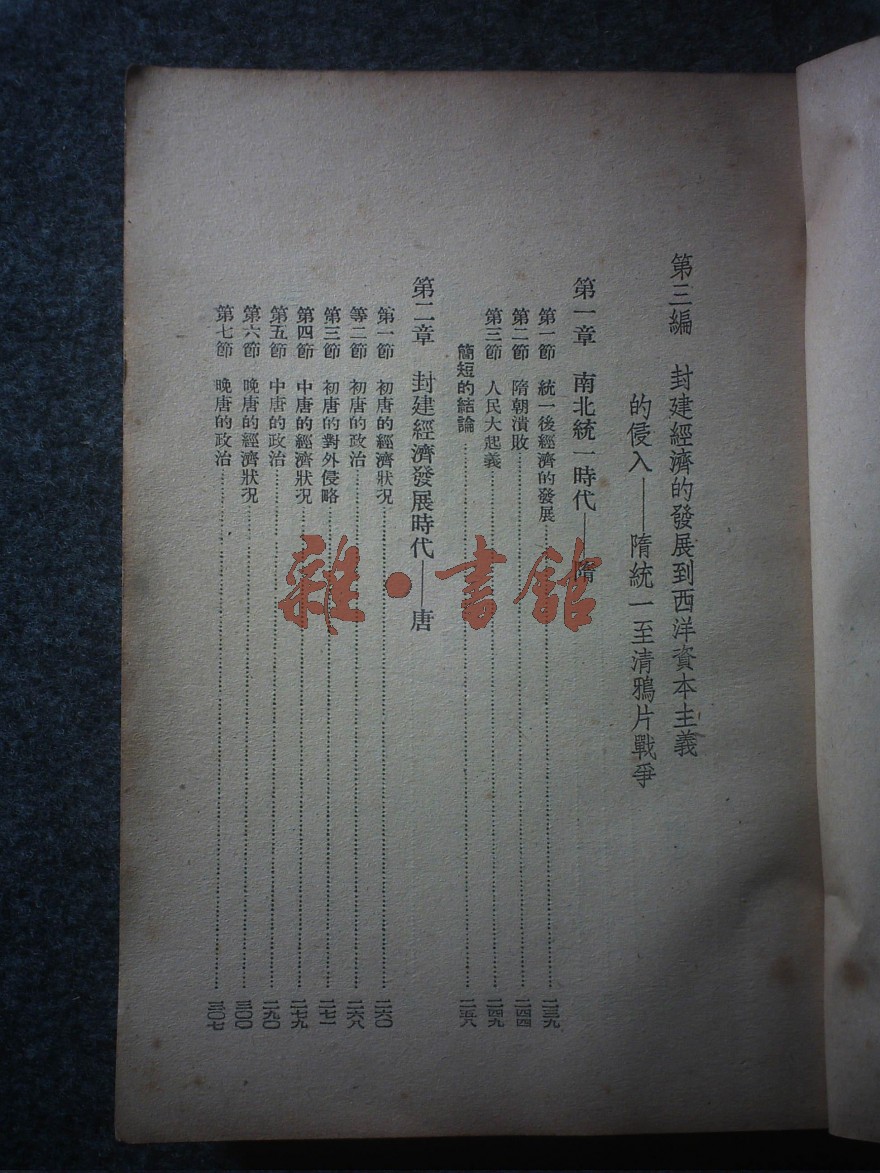 第三編 封建經濟的發展到西洋資本主義
的侵入——隋統一至清鴉片戰爭
第一章 南北統一時代——隋
第一節 統一後經濟的發展……二三九
第二節 隋朝潰敗……二四四
第三節 人民大起義……二四九
簡短的結論……二五八
第二章 封建經濟發展時代——唐
第一節 初唐的經濟狀况……二六〇
等二節 初唐的政治……二六八
第三節 初唐的對外侵略……二七一
第四節 中唐的經濟狀况……二七九
第五節 中唐的政治……二九〇
第六節 晚唐的經濟狀况……三〇〇
第七節 晚唐的政治……三〇七
雜·書館